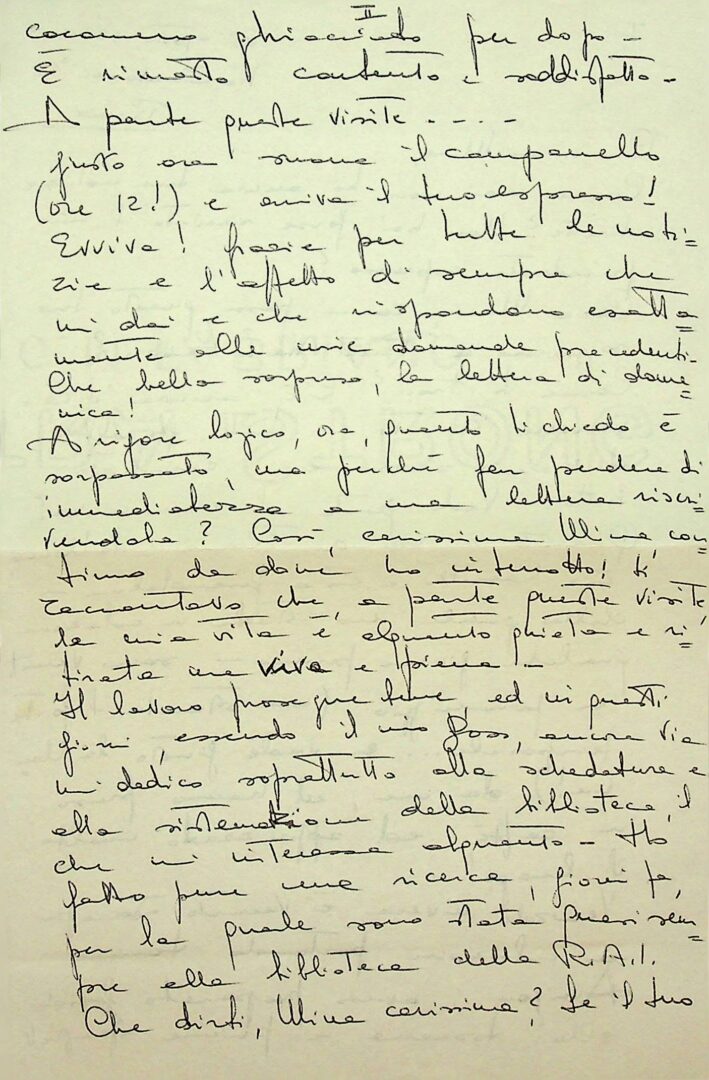 II
cocomero ghiacciato per dopo -
È rimasto contento e soddisfatto -
A parte queste visite . - . -
giusto ora suona il campanello
(ore 12!) e arriva il tuo espresso!
Evviva! grazie per tutte le noti=
zie e l'affetto di sempre che
mi dai e che rispondono esatta=
mente alle mie domande precedenti.
Che bella sorpresa, la lettera di dome=
nica!
A rigore logico, ora, quanto ti chiedo è
sorpassato, ma perché far perdere di
immediatezza a una lettera riscri=
vendola? Così, carissima Mina, con=
tinuo da dove ho interrotto! ti
raccontavo che, a parte queste visite,
la mia vita è alquanto quieta e ri=
tirata ma viva e piena! -
Il lavoro prosegue bene, ed in questi
giorni, essendo il mio Boss, ancora via
mi dedico soprattutto alla schedatura e
alla sistemazione della biblioteca, il
che mi interessa alquanto - Ho
fatto pure una ricerca, giorni fa,
per la quale sono stata quasi sem=
pre alla biblioteca della R.A.I.
Che dirti, Mina carissima? Se il tuo